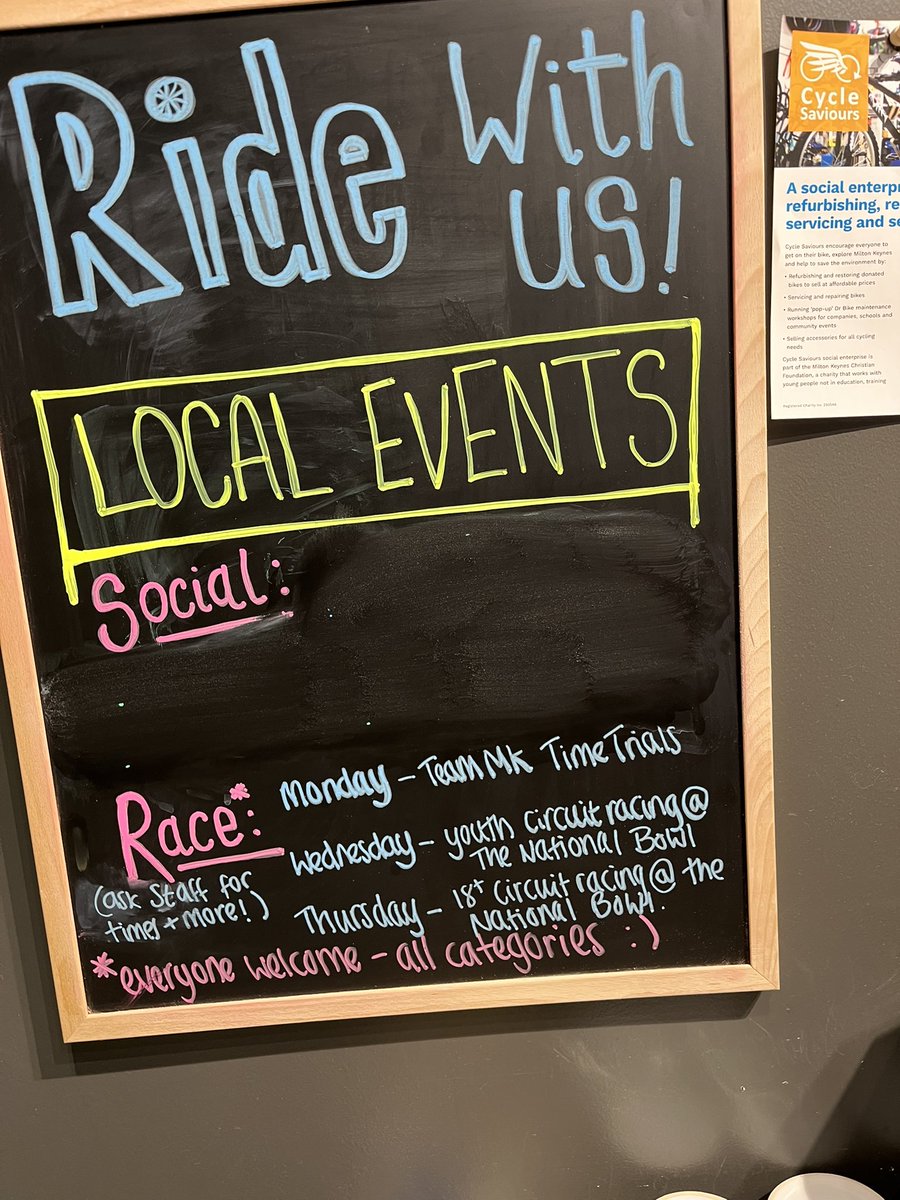 Ride With
us!
LOCAL EVENTS
Social:
Race*:
(ask Staff for
times + more!)
Monday - Team MK Time Trials
Wednesday - youth circuit racing @
The National Bowl
Thursday - 18+ circuit racing @ the
National Bowl.
*everyone welcome - all categories :)
Cycle
Saviours
A social enterpr
refurbishing, re
servicing and se
Cycle Saviours encourage everyone to
get on their bike, explore Milton Keynes
and help to save the environment by:
• Refurbishing and restoring donated
bikes to sell at affordable prices
• Servicing and repairing bikes
• Running 'pop-up' Dr Bike maintenance
workshops for companies, schools and
community events
• Selling accessories for all cycling
needs
Cycle Saviours social enterprise is
part of the Milton Keynes Christian
Foundation, a charity that works with
young people not in education, training
Registered Charity no